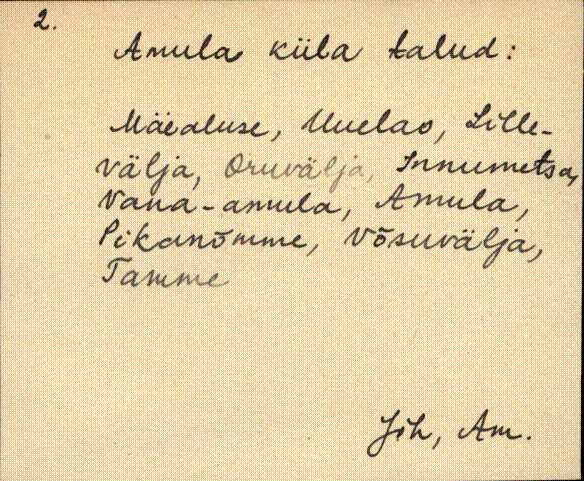 2.
Amula küla talud:
Mäealuse, Uuelao, Lille-
välja, Oruvälja, Innumetsa,
Vana-amula, Amula,
Pikanõmme, Võsuvälja,
Tamme
Jõh, Am.